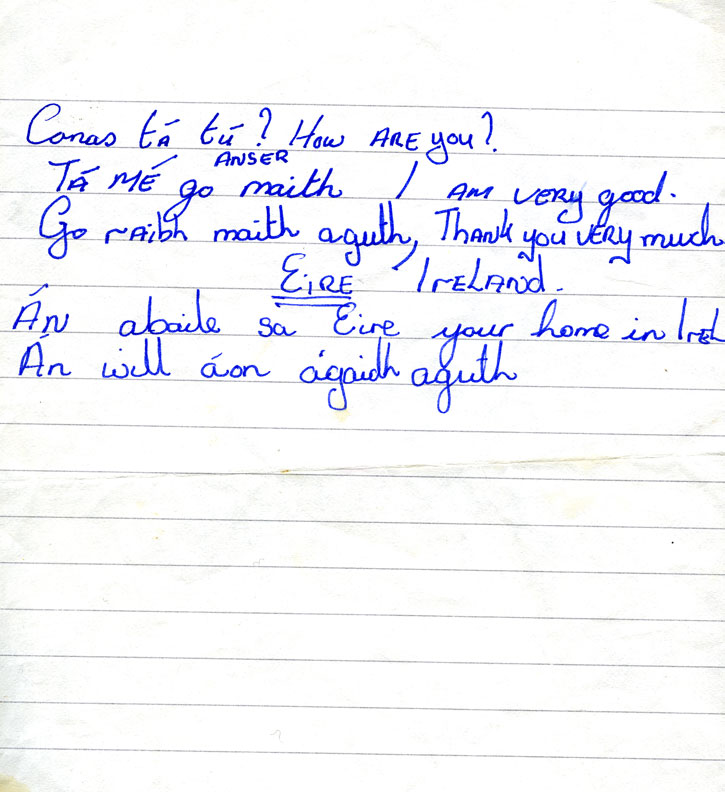 Conas tá tú? How ARE you?
ANSER
TÁ MÉ go maith I AM VERY good.
Go rAibh maith aguth, THANK you VERY much
EiRE IreLAND.
ÁN abaile sa Eire your home in Irel
Án will áon ágaidh aguth